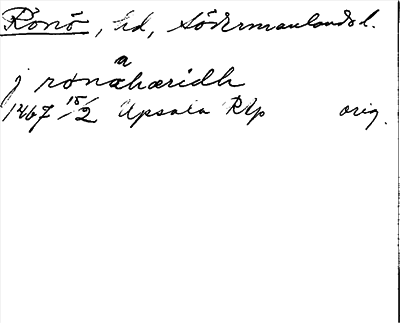 Rönö, hd, Södermanlands l.
a
j rönæhæridh
1467 15/2 Upsala RAp orig.